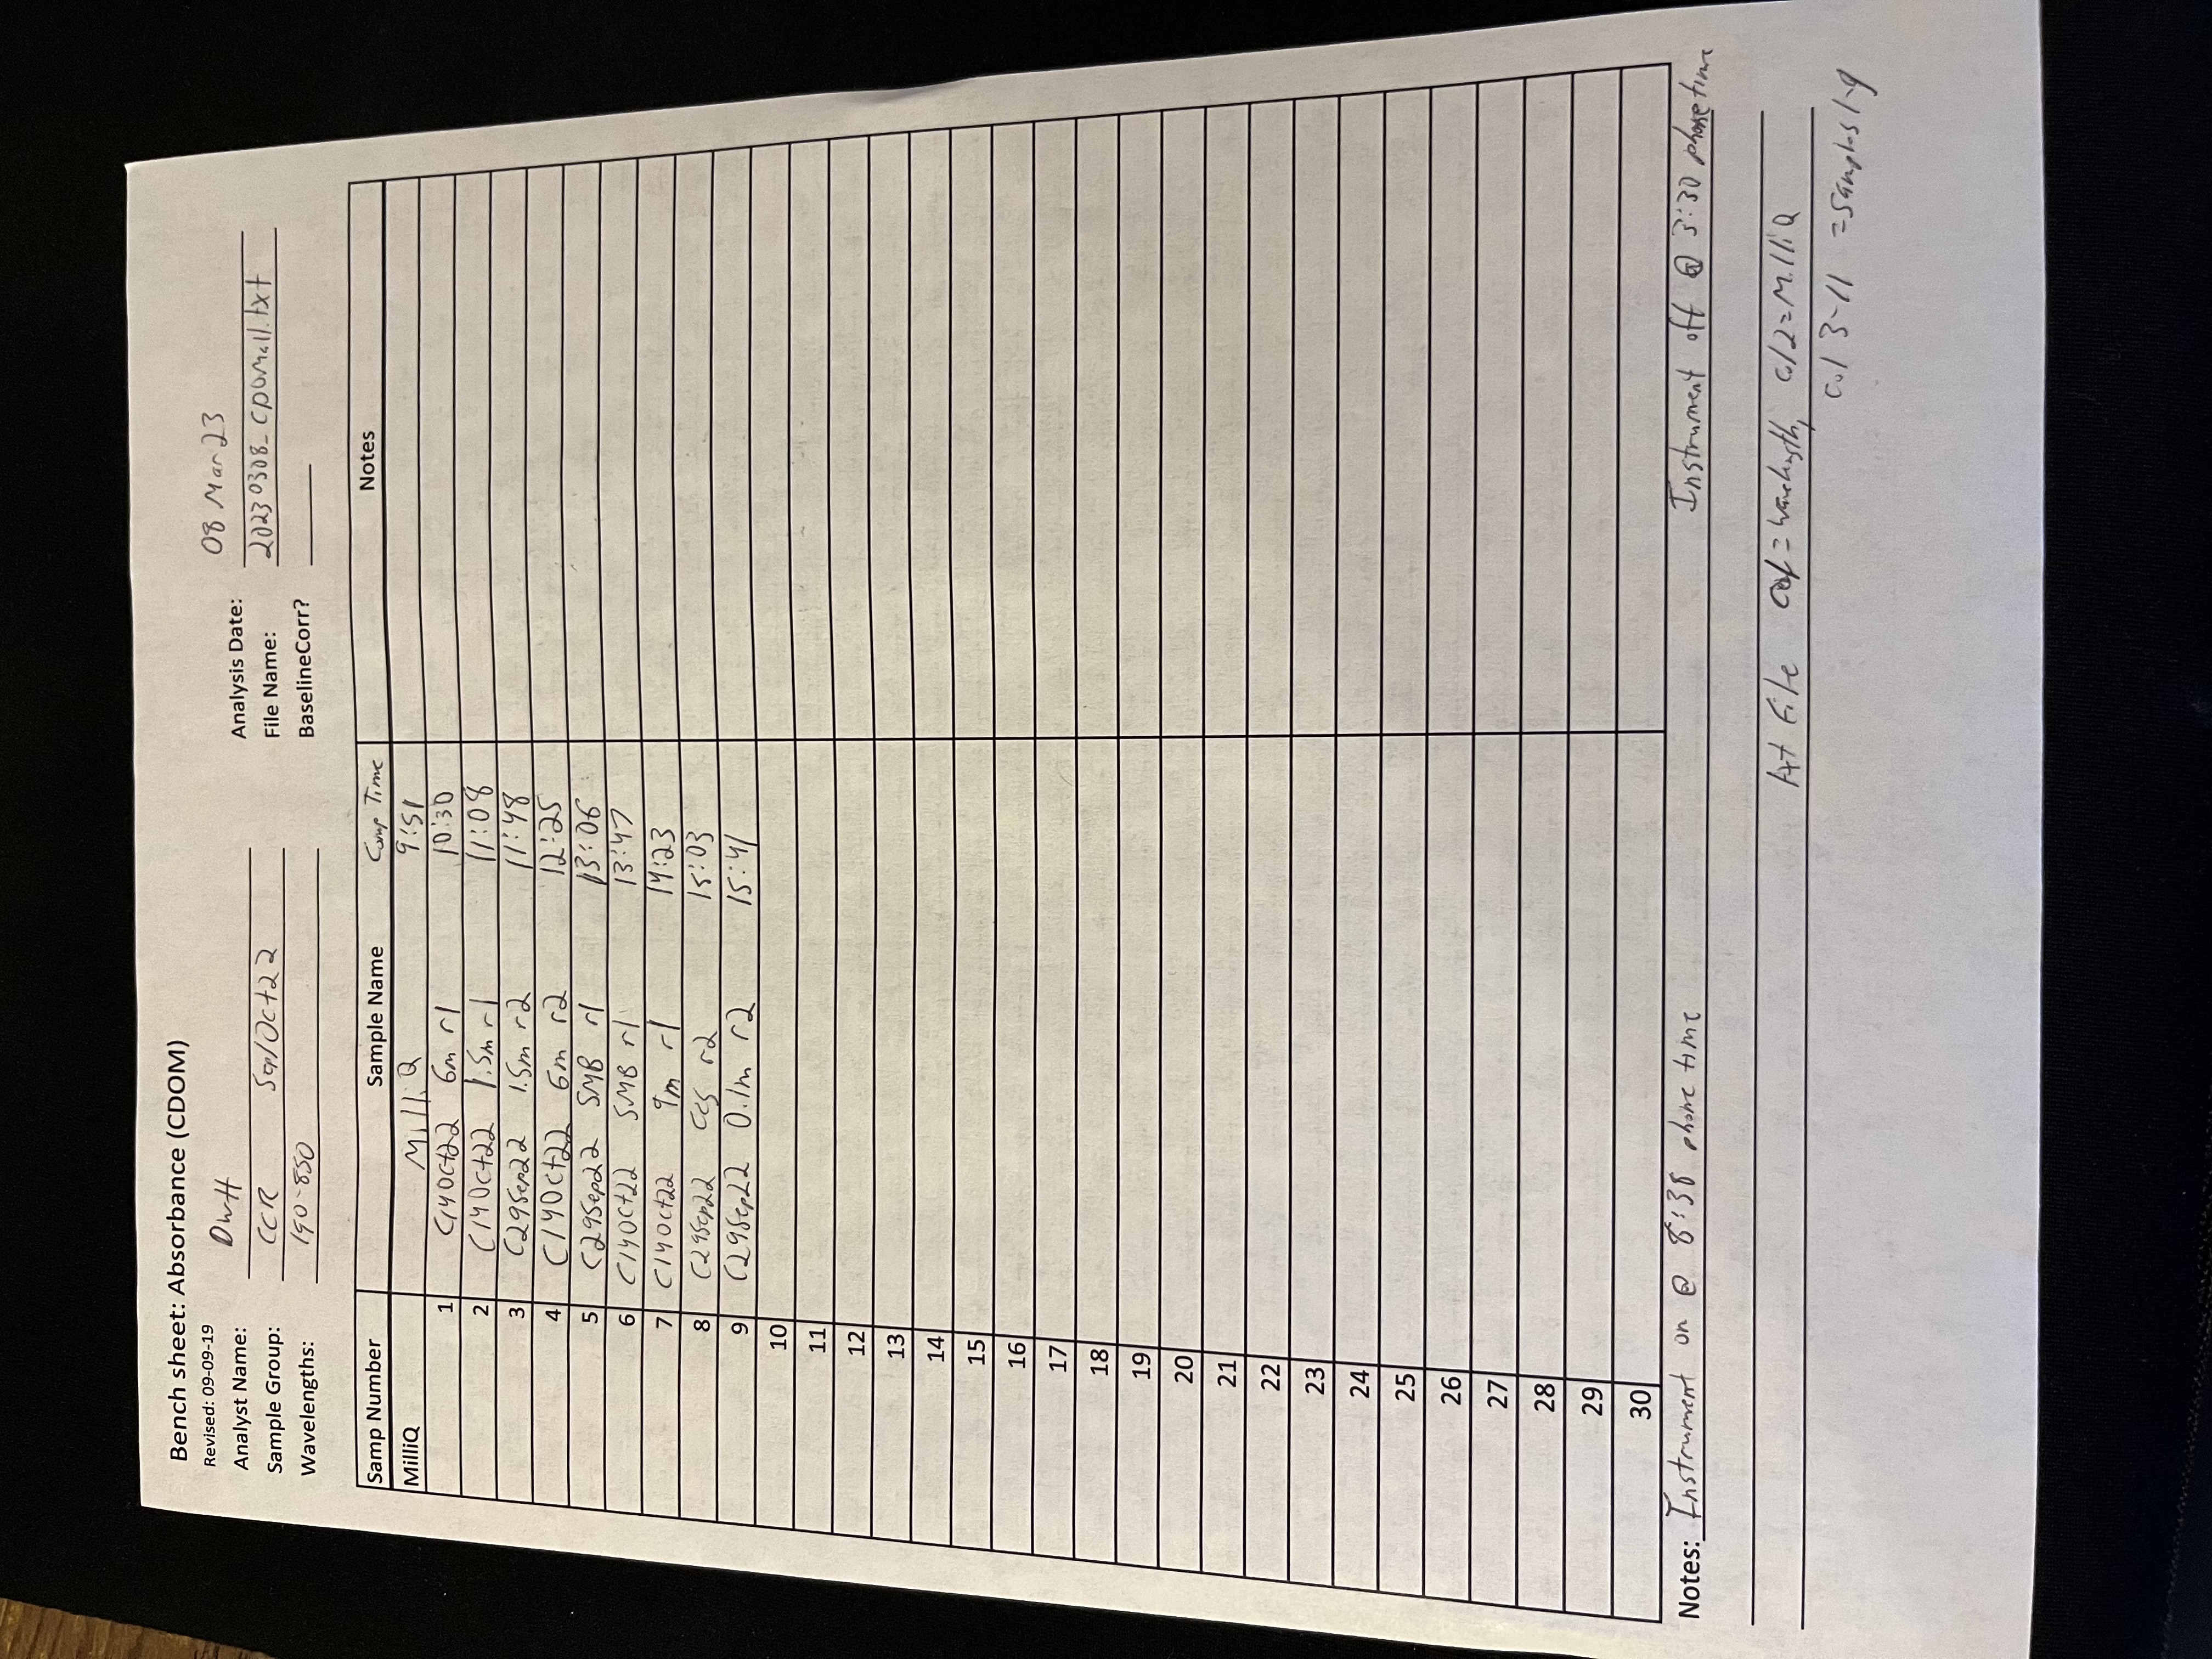 Bench sheet: Absorbance (CDOM)
Revised: 09-09-19
Analyst Name: DWH
Analysis Date: 08 Mar 23
Sample Group: CCR Sep/Oct22
File Name: 20230308_CDOMall.txt
Wavelengths: 190-850
BaselineCorr?
Samp Number Sample Name Comp Time Notes
MilliQ MilliQ 9:51
1 C14Oct22 6m r1 10:30
2 C14Oct22 1.5m r1 11:08
3 C29Sep22 1.5m r2 11:48
4 C14Oct22 6m r2 12:25
5 C29Sep22 SMB r1 13:06
6 C14Oct22 SMB r1 13:47
7 C14Oct22 9m r1 14:23
8 C29Sep22 CCS r2 15:03
9 C29Sep22 0.1m r2 15:41
10
11
12
13
14
15
16
17
18
19
20
21
22
23
24
25
26
27
28
29
30
Notes: Instrument on @ 8:38 phone time Instrument off @ 3:30 phone time
txt File = wavelength, col2=MilliQ
col 3-11 =samples 1-9